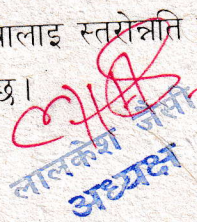 लाई स्तरोन्नति
छ।
लालकेश जैसी
अध्यक्ष